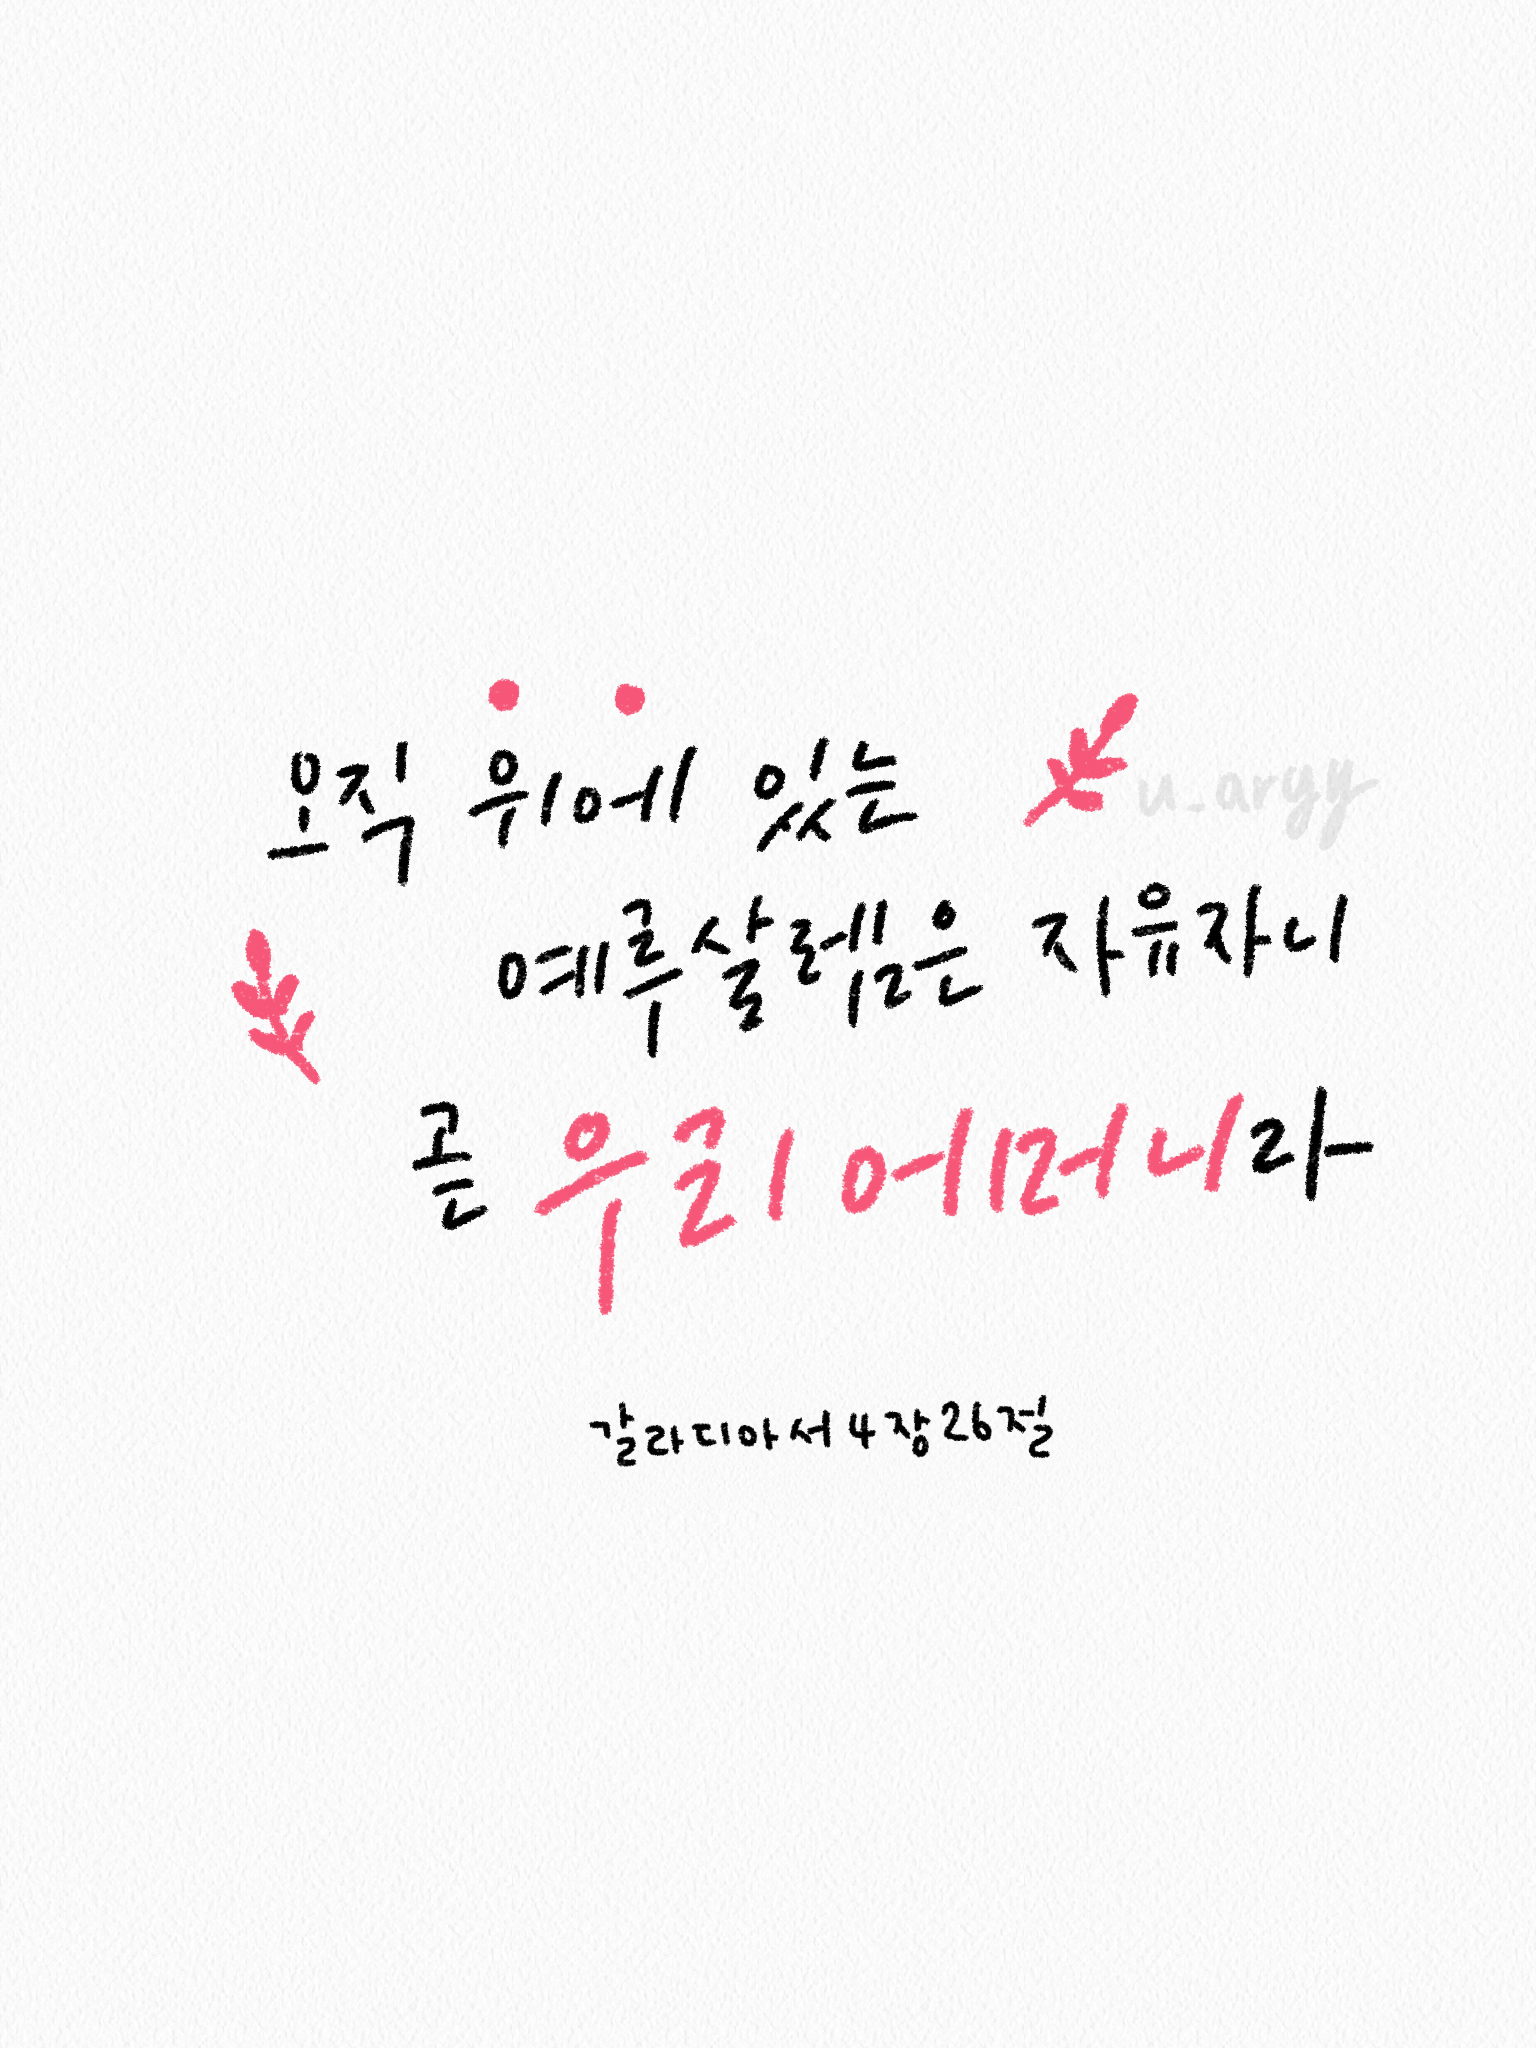 오직 위에 있는
u_argy
예루살렘은 자유자니
곧 우리 어머니라
갈라디아서 4장 26절